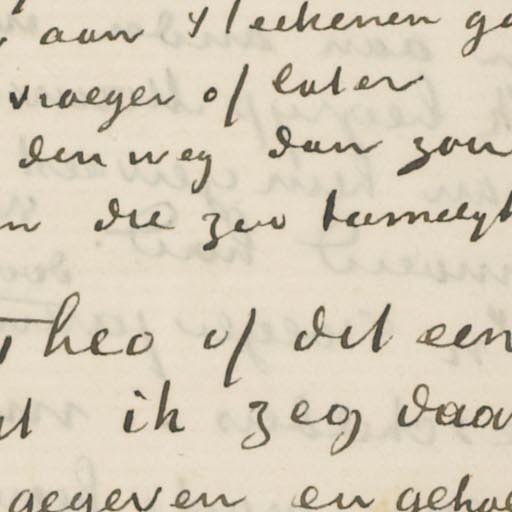 aan 't teekenen ga
vroeger of later
den weg dan zou
n die zeer tamelyk
Theo of dit een
ik zeg daar
gegeven en geho